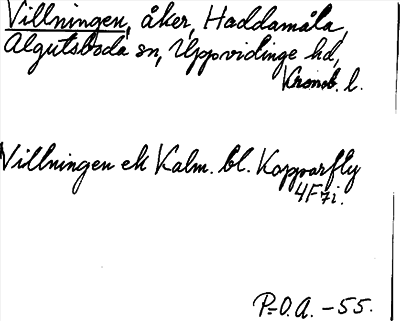 Villningen, åker, Haddamåla,
Algutsboda sn, Uppvidinge hd,
Kronob. l.
Villningen ek Kalm. bl. Kopparfly
4F7i.
P-O.A. -55.